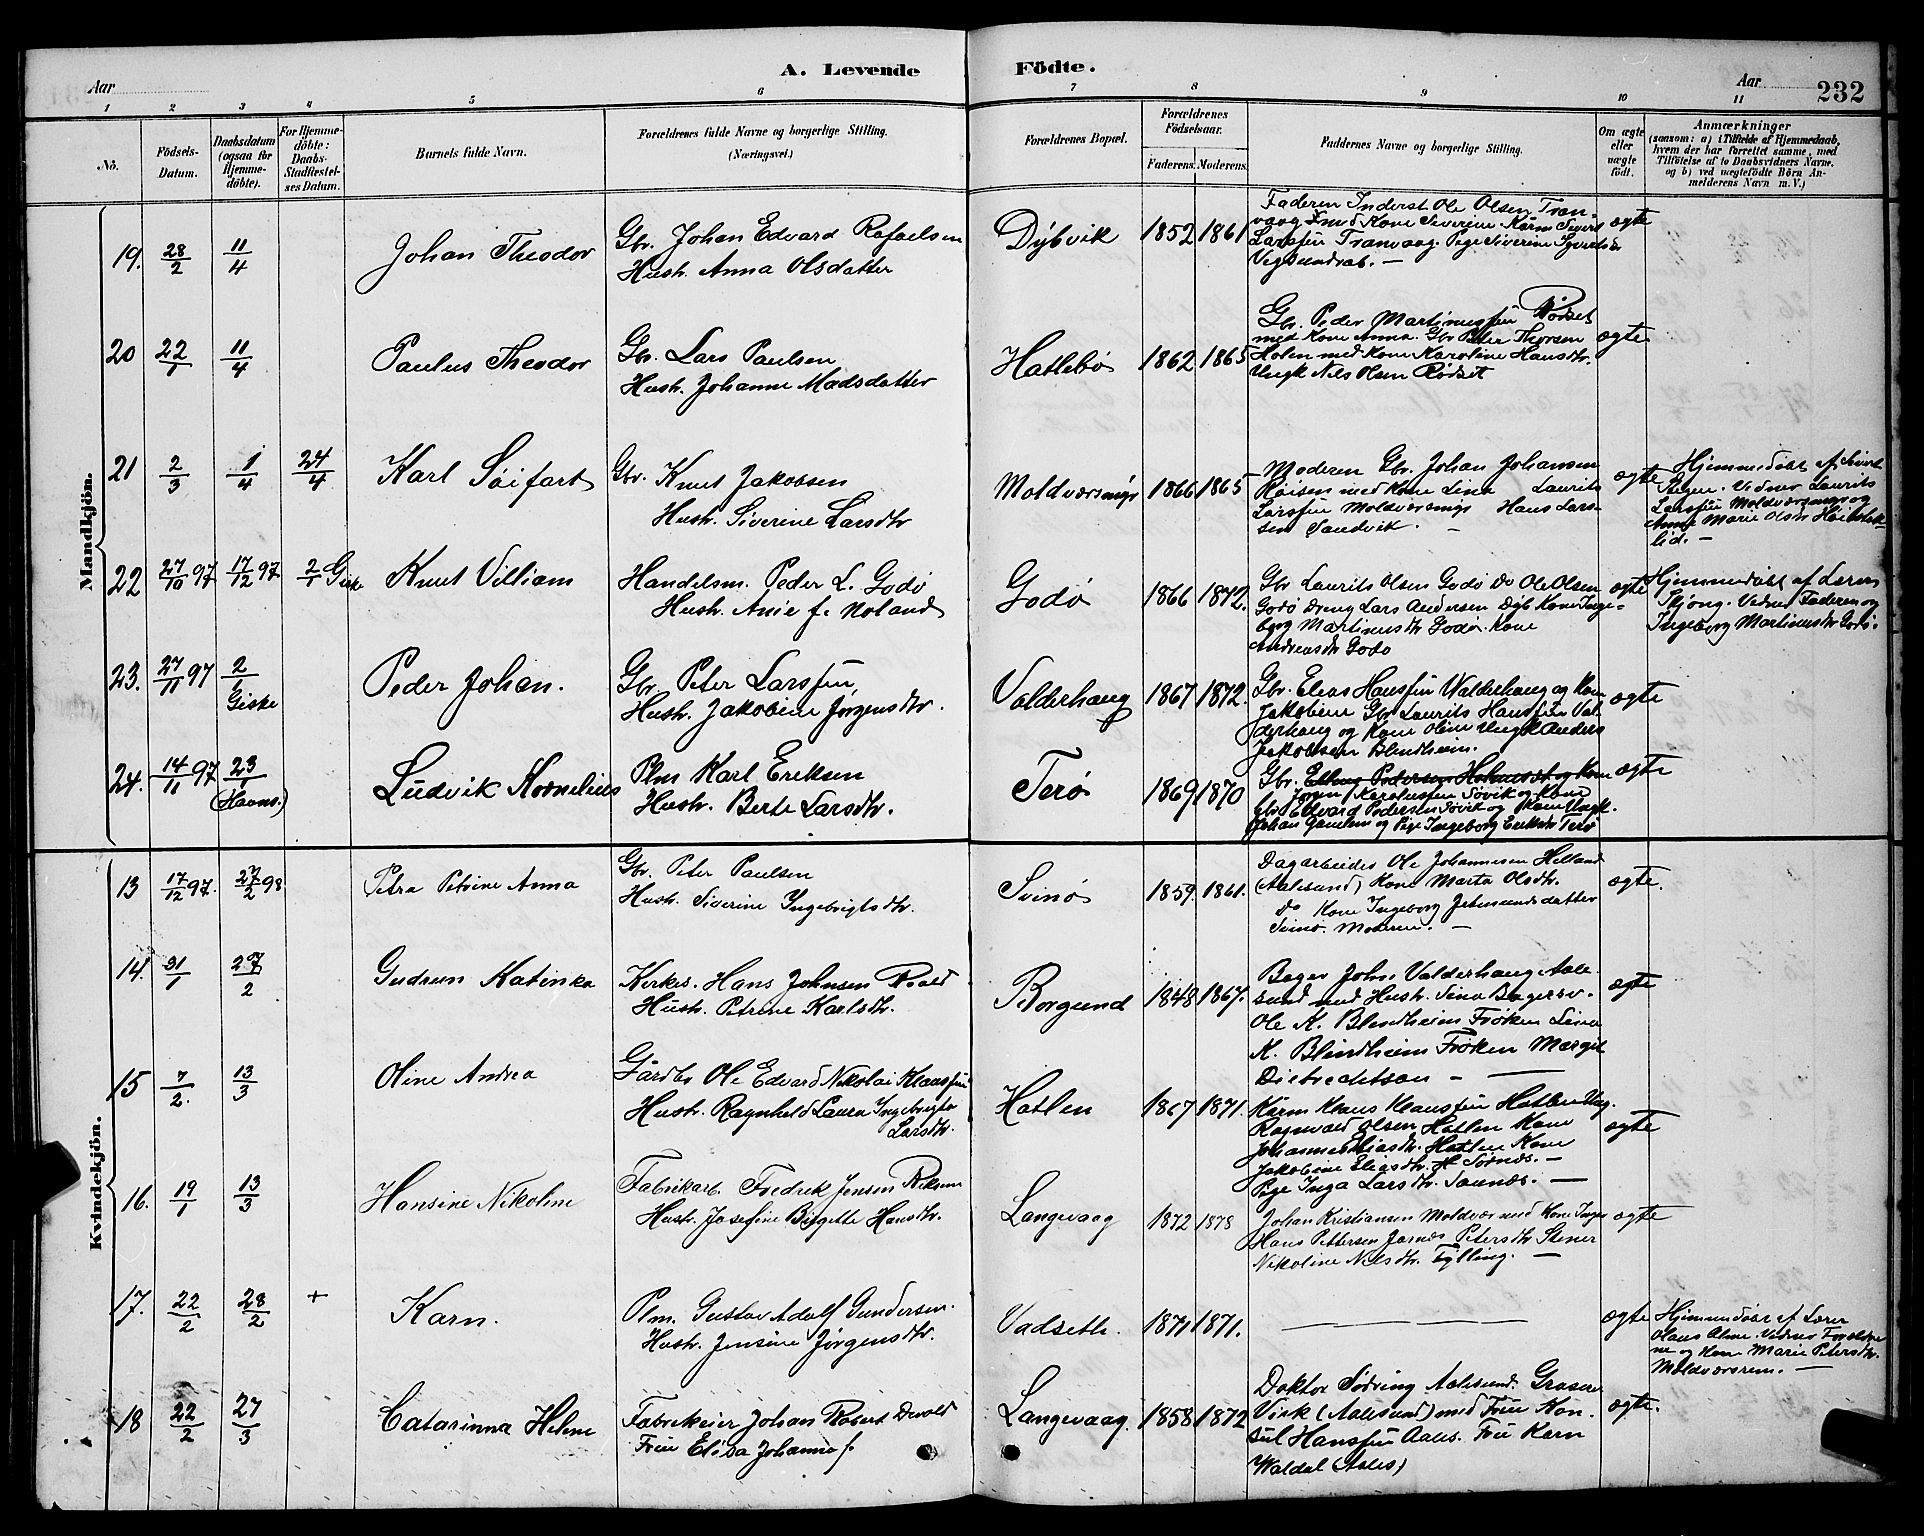 A. Levende Födte.
Aar
Aar 232
1 2 3 4 5 6 7 8 9 10 11
No.
Födsels-Datum.
Daabsdatum (ogsaa for Hjemme-döbte).
For Hjemme-döbte: Daabs-Stadfæstel-ses Datum.
Barnets fulde Navn.
Forældrenes fulde Navne og borgerlige Stilling.
(Næringsvei.)
Forældrenes Bopæl.
Forældrenes Födselsaar.
Faderens. Moderens.
Faddernes Navne og borgerlige Stilling.
Om ægte eller uægte födt.
Anmærkninger
(saasom: a) i Tilfælde af Hjemmedaab,
hvem der har forrettet samme, med
Tilföielse af to Daabsvidners Navne,
og b) ved uægtefödte Börn An-
melderens Navn m. V.)
Mandkjön.
19. 28/2 11/4 Johan Theodor
Gbr. Johan Edvard Rafaelsen
Hustr. Anna Olsdatter
Dybvik 1852 1861
Faderen Inderst Ole Olsen Tran-
vaag med Kone Severine Karm Sivert
Larssen Tranvaag. Pige Siverine
Vegsundsab. —
ægte
20 22/1 11/4 Paulus Theodor
Gbr. Lars Paulsen
Hustr. Johanne Madsdatter
Hatlebø 1862 1865
Gbr. Peder Martinussen Rødset
med Kone Anna. Gbr Peter Thorsen
Holen med Kone Karoline Hansdtr.
Ungk Nils Olsen Rødset
ægte
21 2/3 1/4 24/4 Karl Söifart
Gbr. Knut Jakobsen
Hustr. Siverine Larsdtr
Moldværsmyr 1866 1865
Moderen Gbr. Johan Johansen
Röisen med Kone Lina Laurits
Larssen Moldværsmyr Hans Lars-
sen Sandvik. —
ægte
Hjemmedöbt af Sivert
Vidner Laurits
Larssen Moldværsmyr og
Anne Marie Olsdtr
lid. —
22 27/10 97 17/12 97 2/1 Giske Knut Villiam
Handelsm. Peder L. Godø
Hustr. Anie f. Roland
Godø 1866 1872.
Gbr Laurits Olsen Godø Do Ole Olsen
Godø Dreng Lars Andersen Dyb Kone Inge-
borg Martinusdtr Godø. Kone
Andreasdtr Godø
ægte
Hjemmedöbt af Læreren
Skjong. Vidner Faderen og
Ingeborg Martinusdtr Godø.
23. 27/11 97 2/1 Giske Peder Johan.
Gbr. Peter Larssen,
Hustr. Jakobine Jørgensdtr.
Valderhaug 1867 1872.
Gbr. Elias Hanssen Walderhaug og Kone
Jakobine Gbr Laurits Hanssen Val-
derhaug og Kone Oline Ungk Anders
Jakobsen Blindheim.
ægte
24. 14/11 97 23/1 (Havns.) Ludvik Kornelius
Plm Karl Eriksen
Hustr. Berte Larsdtr.
Terø 1869 1870
Gbr.
Jørgen Karolussen Søvik og Kone
Gbr Edvard Pedersen Søvik og Kone Ungk.
Johan og Pige Ingeborg Eriksdtr Terø
ægte
Kvindekjön.
13 17/12 97. 27/2 98 Petra Petrine Anna
Gbr. Peter Paulsen
Hustr. Siverine Ingebrigtsdtr.
Svinø 1859. 1861.
Dagarbeider Ole Johannesen Helland
(Aalesund) Kone Marta Olsdtr.
Do Kone Ingeborg
Svinø. Moderen. —
ægte.
14. 31/1 27/2 Gudrun Katinka
Kirkes. Hans Johnsen Roald
Hustr. Petrine Karlsdtr.
Borgund 1848 1867.
Bager Johs. Valderhaug Aale-
sund med Hustr. Sina
Ole K. Blindheim Frøken Lina
K. Blindheim Frøken Margit
Diebrechtson — —
ægte
15 7/2. 13/3 Oline Andrea
Gardbr Ole Edvard Nikolai Klaussen
Hustr. Ragnhild Laura Ingebrigta
Larsdtr.
Hatlen 1867 1871.
Karm Klaus Klaussen Hatlen Ung.
Ragnvald Olsen Hatlen Kone
Johanne Eliasdtr. Hatlen Kone
Jakobine Eliasdtr.
Pige Inga Larsdtr. —
ægte
16. 19/1 13/3 Hansine Nikoline
Fabrikarb. Fredrik Jensen
Hustr. Josefine Birgitte Hansdtr.
Langevaag 1872 1878
Johan Kristiansen Moldvær med Kone Inger
Hans Pettersen Petersdtr Stener
Nikoline Nilsdtr. Fylling. —
ægte
17. 22/2 28/2 + Karn.
Plm. Gustav Adolf Gundersen.
Hustr. Jensine Jørgensdtr.
Vadseth. 1871 1871.
—
ægte
Hjemmedöbt af Lærer
Olaus Vidner Foreldre-
ne og Kone Marie Petersdtr.
Moldværsrem. —
18 22/2 27/3 Catarinna Helene
Fabrikeier Johan Robert Devold
Frue Elisa Johanna f.
Langevaag. 1858 1872
Doktor Sødring Aalesund. Grosserer
Virk (Aalesund) med Frue Kon-
sul Hanssen Aales. Frue Karn
Waldal (Aales)
ægte.